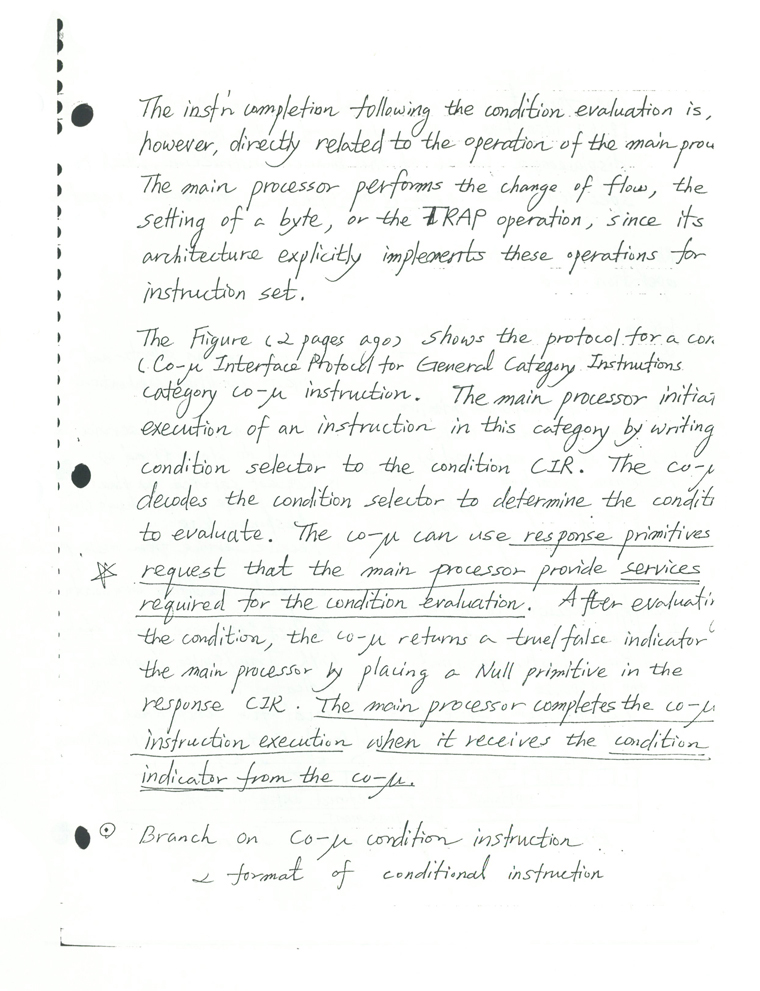 The inst'n completion following the condition evaluation is,
however, directly related to the operation of the main
The main processor performs the change of flow, the
setting of a byte, or the TRAP operation, since its
architecture explicitly implements these operations for
instruction set.
The Figure (2 pages ago) shows the protocol for a
(Co-μ Interface Protocol for General Category Instructions
category co-μ instruction. The main processor
execution of an instruction in this category by writing
condition selector to the condition CIR. The co-μ
decodes the condition selector to determine the
to evaluate. The co-μ can use response primitives
request that the main processor provide services
required for the condition evaluation. After
the condition, the co-μ returns a true/false indicator
the main processor by placing a Null primitive in the
response CIR. The main processor completes the co-μ
instruction execution when it receives the condition
indicator from the co-μ.
Branch on Co-μ condition instruction
format of conditional instruction